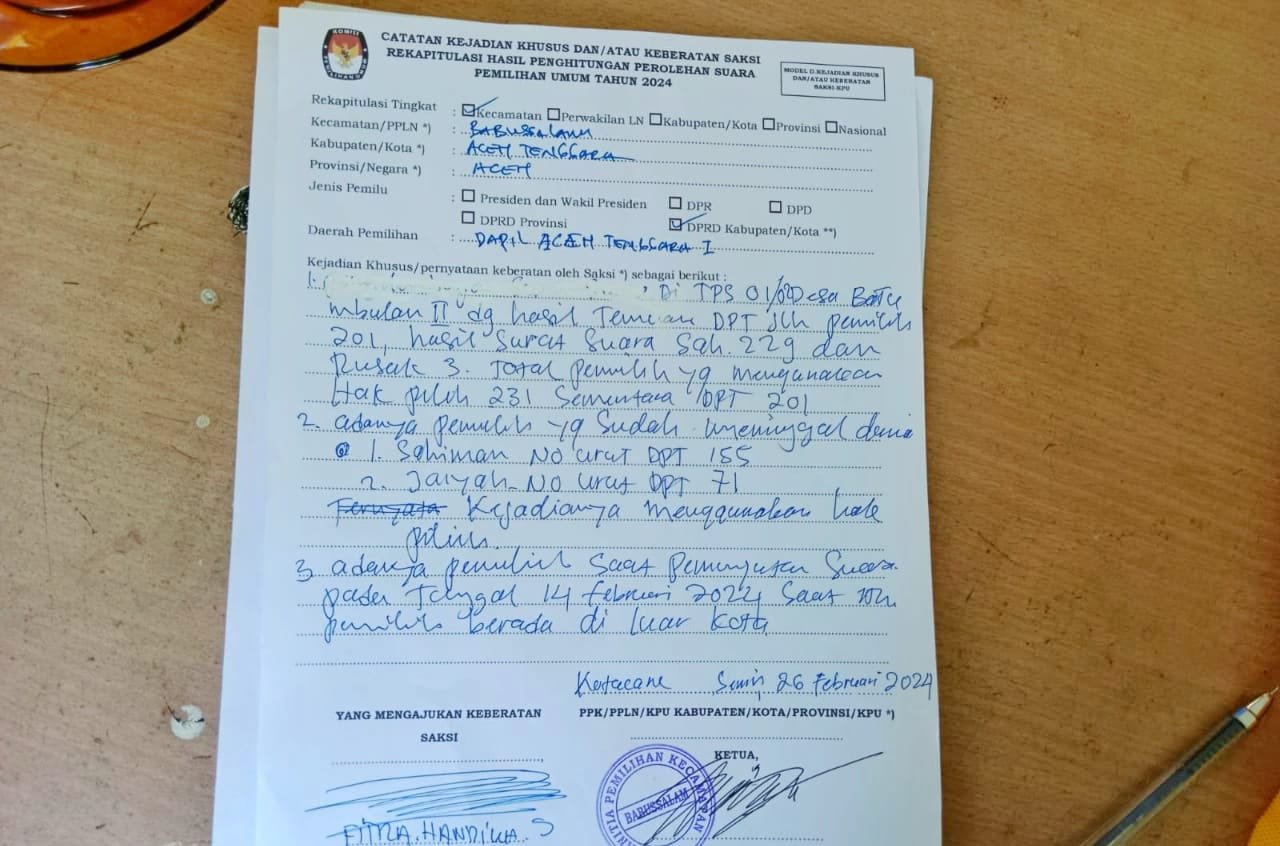 KOMISI
CATATAN KEJADIAN KHUSUS DAN/ATAU KEBERATAN SAKSI
REKAPITULASI HASIL PENGHITUNGAN PEROLEHAN SUARA
PEMILIHAN UMUM TAHUN 2024
MODEL D.KEJADIAN KHUSUS
DAN/ATAU KEBERATAN
SAKSI-KPU
Rekapitulasi Tingkat : Kecamatan Perwakilan LN Kabupaten/Kota Provinsi Nasional
Kecamatan/PPLN *) : BABUSSALAM
Kabupaten/Kota *) : ACEH TENGGARA
Provinsi/Negara *) : ACEH
Jenis Pemilu : Presiden dan Wakil Presiden DPR DPD
DPRD Provinsi DPRD Kabupaten/Kota **)
Daerah Pemilihan : DAPIL ACEH TENGGARA I
Kejadian Khusus/pernyataan keberatan oleh Saksi *) sebagai berikut :
1. Di TPS 01 Desa Batu
mbulan II dg hasil Temuan DPT Jlh pemilih
201, hasil Surat Suara Sah. 229 dan
Rusak 3. Total pemilih yg mengunakan
Hak pilih 231 Sementara DPT 201
2. adanya pemilih yg Sudah meninggal dunia
1. Sahiman No urut DPT 155
2. Jaiyah No urut DPT 71
Ternyata Kejadianya menggunakan hak
pilih.
3 adanya pemilih Saat Pemunyutan Suara
pada Tanggal 14 februari 2024 Saat itu
pemilih berada di luar kota
Kutacane Senin, 26 februari 2024
YANG MENGAJUKAN KEBERATAN
SAKSI
PPK/PPLN/KPU KABUPATEN/KOTA/PROVINSI/KPU *)
KETUA,
PANITIA PEMILIHAN KECAMATAN
BABUSSALAM
FITRA HANDIKA S